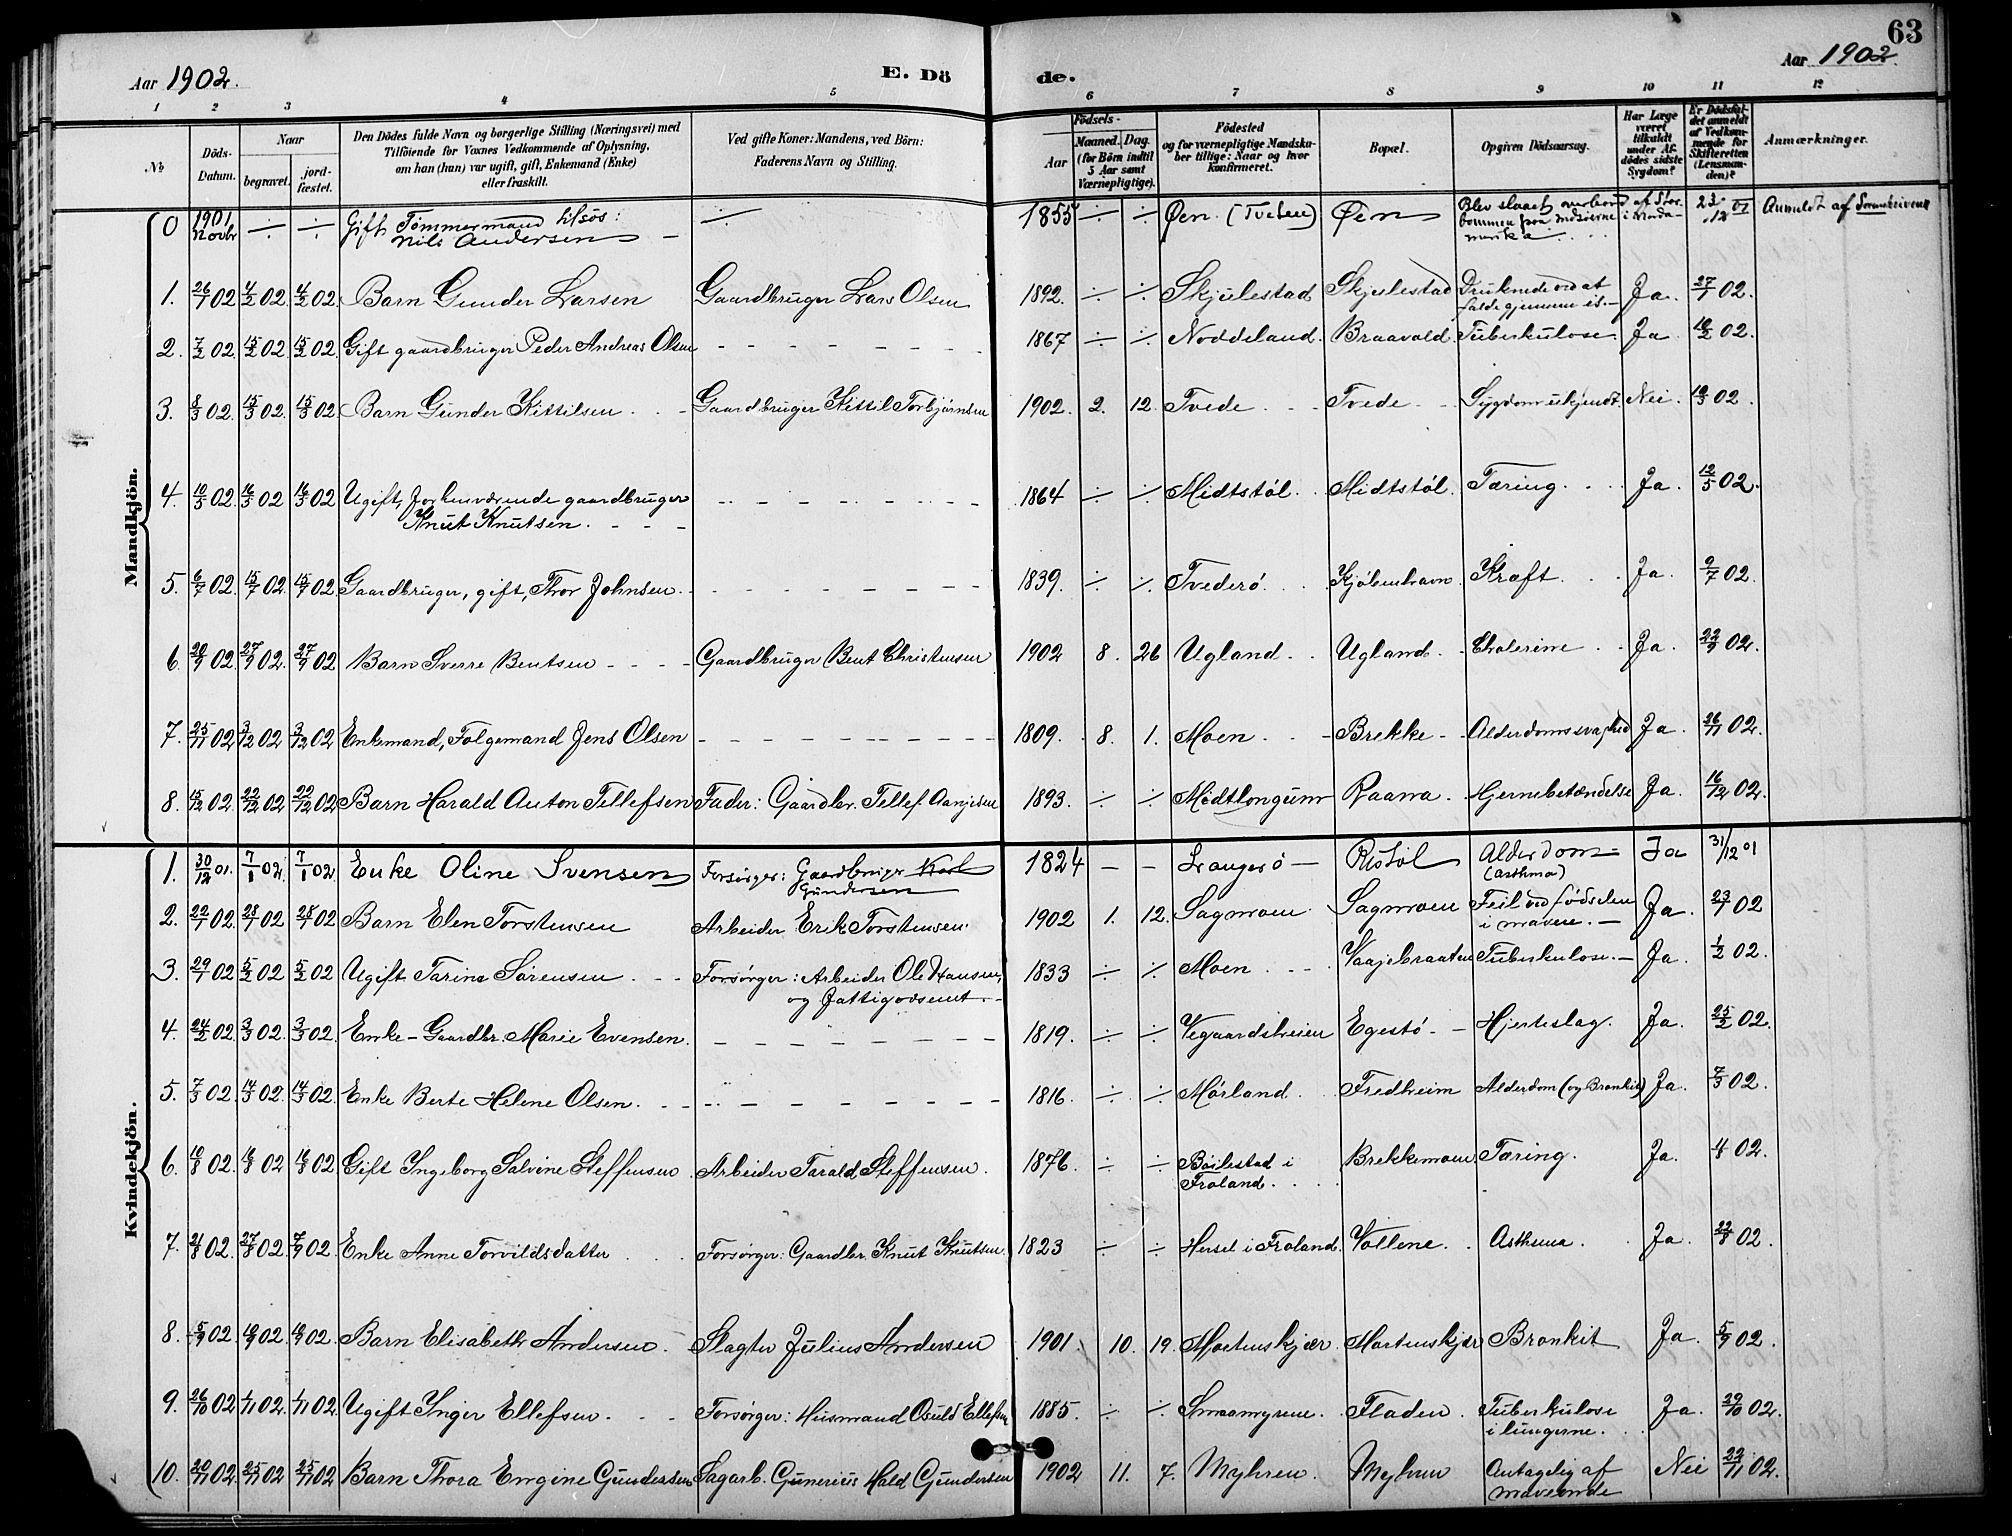 63
Aar 1902.
E. Dö
de.
Aar 1902.
1 2 3 4 5 6 7 8 9 10 11 12
No
Döds-Datum.
Naar
begravet.
jord-fæstet.
Den Dödes fulde Navn og borgerlige Stilling (Næringsvei) med
Tilföiende for Voxnes Vedkommende af Oplysning,
om han (hun) var ugift, gift, Enkemand (Enke)
eller fraskilt.
Ved gifte Koner: Mandens, ved Börn:
Faderens Navn og Stilling.
Födsels-
Aar
Maaned. Dag.
(for Börn indtil
5 Aar samt
Værnepligtige).
Födested
og for værnepligtige Mandska-
ber tillige: Naar og hvor
konfirmeret.
Bopæl.
Opgiven Dödsaarsag.
Har Læge
været
tilkaldt
under Af-
dödes sidste
Sygdom?
Er Dödsfal-
det anmeldt
af Vedkom-
mende for
Skifteretten
(Lensman-
den)?
Anmærkninger.
Mandkjön.
0 1901 Novbr ÷ ÷ Gift Tömmermand tilsös: Nils Andersen ÷ 1855 ÷ ÷ Øen (Tveten) Øen Blev slaaet overbord af Stor-bommen paa i Nordamerika 23/12 01 Anmeldt af Sorenskriveren
1. 26/1 02 4/2 02. 4/2 02. Barn Gunder Larsen Gaardbruger Lars Olsen 1892. ÷ ÷ Skjulestad Skjulestad Druknede ved at falde gjennem is. Ja. 27/1 02.
2. 7/2 02 15/2 02 15/2 02. Gift gaardbruger Peder Andreas Olsen 1867 ÷ ÷ Noddeland. Braavold. Tuberkulose. Ja 10/2 02.
3. 8/3 02. 15/3 02. 15/3 02 Barn Gunder Kittilsen Gaardbruger Kittil Torbjörnsen 1902. 2. 12. Tvede Tvede Sygdom ukjendt. Nei. 10/3 02.
4. 10/5 02. 16/5 02 16/5 02 Ugift, forhenværende gaardbruger Knut Knutsen. 1864 ÷ ÷ Midtstøl. Midtstøl. Tæring. Ja. 12/5 02.
5 6/7 02. 15/7 02. 15/7 02 Gaardbruger, gift, Thor Johnsen. 1839. ÷ ÷ Tvederö. Kjöbenhavn. Kræft. Ja. 9/7 02.
6. 20/9 02. 27/9 02. 27/9 02 Barn Sverre Bentsen Gaardbruger Bent Christensen 1902 8. 26 Ugland. Ugland. Cholerine Ja. 22/9 02.
7. 25/11 02 3/12 02 3/12 02 Enkemand, Folgemand Jens Olsen 1809. 8. 1. Moen Brekke Alderdomssvaghed Ja. 26/11 02.
8. 15/12 02. 22/12 02 22/12 02 Barn Harald Anton Tellefsen Fader: Gaardbr. Tellef Aanjesen 1893. ÷ ÷ Midtlongum Raana. Hjernebetændelse Ja. 16/12 02.
Kvindekjön.
1. 30/12 01. 7/1 02. 7/1 02 Enke Oline Svensen Forsörger: Gaardbruger Karl Gundersen 1824 – – Langerö Ristöl Alderdom (Asthma) Ja 31/12 01
2. 22/1 02. 28/1 02 28/1 02 Barn Elen Torstensen Arbeider Erik Torstensen. 1902 1. 12. Sagmoen Sagmoen Feil ved födselen i maven. Ja. 23/1 02
3. 29/1 02 5/2 02 5/2 02 Ugift Tarine Sörensen Forsörger: Arbeider Ole Hansen, og Fattigvæsenet. 1833 ÷ ÷ Moen Vaajebraaten Tuberkulose. Ja. 1/2 02.
4. 24/2 02 3/3 02. 3/3 02. Enke – Gaardbr. Marie Evensen. 1819. ÷ ÷ Vegaardsheien Egestö Hjerteslag. Ja. 25/2 02.
5. 7/3 02. 14/3 02. 14/3 02. Enke Berte Helene Olsen. 1816. ÷ ÷ Mörland. Fredheim Alderdom (og Bronkit) Ja. 7/3 02.
6. 10/8 02. 16/8 02 16/8 02 Gift Ingeborg Salvine Steffensen Arbeider Tarald Steffensen. 1876. ÷ ÷ Böilestad i Froland. Brekkemoen. Tæring. Ja. 02.
7. 21/8 02. 27/8 02. 7/9 02. Enke Anne Torvildsdatter Forsörger: Gaardbr. Knut Knutsen 1823 ÷ ÷ Hersel i Froland. Vollene. Asthma. Ja. 22/8 02.
8. 5/9 02 10/9 02. 10/9 02. Barn Elisabeth Andersen. Slagter Julius Andersen 1901. 10. 19. Mortenskjær. Mortenskjær Bronkit Ja. 5/9 02.
9. 26/10 02 1/11 02. 1/11 02. Ugift Inger Ellefsen. Forsörger: Husmand Osuld Ellefsen 1885. ÷ ÷ Smaamyrene. Fladen. Tuberkulose i lungerne. Ja. 29/10 02.
10. 20/11 02. 25/11 02 25/11 02 Barn Thora Emgine Gundersen Sagarb. Gunerius Hald Gundersen 1902 11. 7. Myhren. Myhren Antagelig af maveonde Nei 22/11 02.